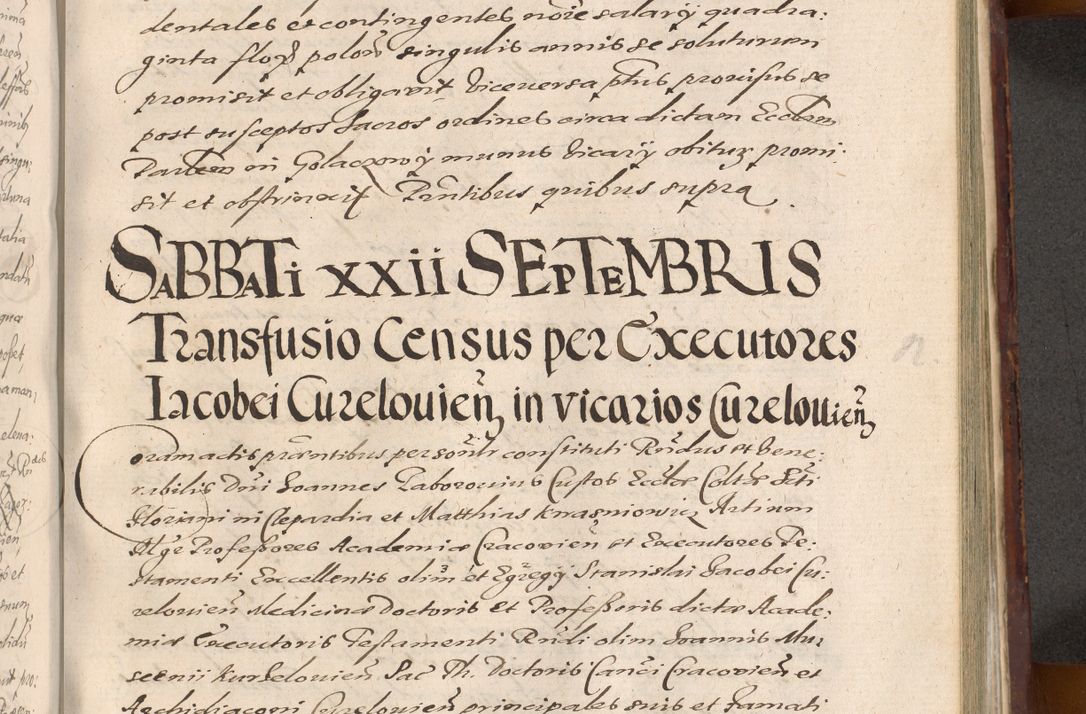 dentales et contingentes noïe salarij quadra:
ginta flor polon singulis annis se soluturum
promisit et obligavit viceversa ptus provisus se
post susceptos sacros ordines circa dictam Eccliam
in Golaczowij munus vicarij obitur promi:
sit et obstrinxit Pntibus quibus supra
SABBATi XXii SEPTEMBRIS
Transfusio Census per Executores
Iacobei Curelouien in vicarios Curelouien
Coram actis prntibus personlr constituti Rndus et Vene:
rabilis Dni Ioannes Taborouius Custos Ecclæ Collæ Scti
Floriani in Clepardia et Matthias Krasniowicz Artium
Professores Academiæ Cracovien et Executores Te:
stamenti Excellentis olim et Egregij Stanislai Iacobei Cu:
relouien Medicinæ Doctoris et Professoris dictæ Acade:
miæ Executoris Testamenti Rndi olim Ioannis Mu
scenii Kurzelouien Sac Th. Doctoris Canci Cracovien et
Archidiaconi Curelouien principales suis et famati